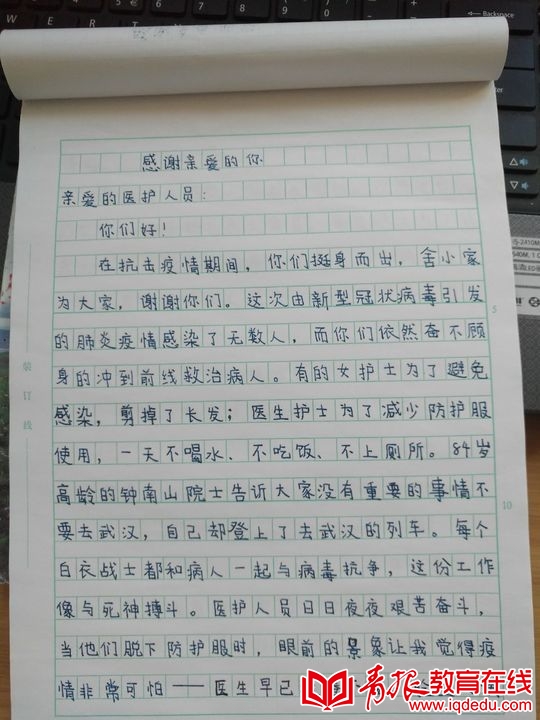 Backspace
感谢亲爱的你
亲爱的医护人员：
你们好！
在抗击疫情期间，你们挺身而出，舍小家
为大家，谢谢你们。这次由新型冠状病毒引发
的肺炎疫情感染了无数人，而你们依然奋不顾
身的冲到前线救治病人。有的女护士为了避免
感染，剪掉了长发；医生护士为了减少防护服
使用，一天不喝水、不吃饭、不上厕所。84岁
高龄的钟南山院士告诉大家没有重要的事情不
要去武汉，自己却登上了去武汉的列车。每个
白衣战士都和病人一起与病毒抗争，这份工作
像与死神搏斗。医护人员日日夜夜艰苦奋斗，
当他们脱下防护服时，眼前的景象让我觉得疫
情非常可怕——医生早已
5
10
装订线
青报教育在线
www.iqdedu.com